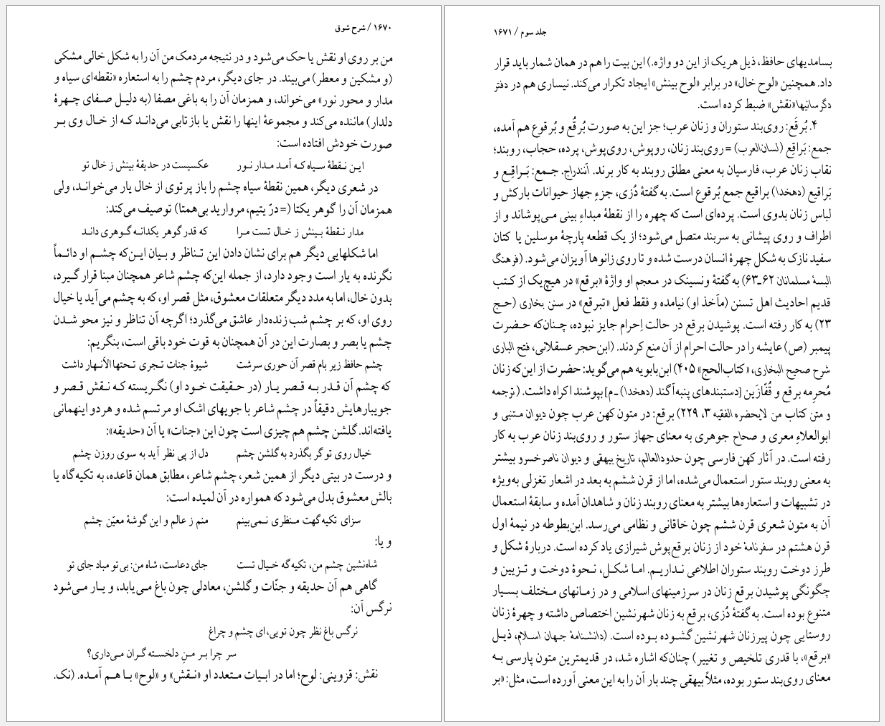 ۱۶۷۰ / شرح شوق
من بر روی او نقش یا حک می‌شود و در نتیجه مردمک من آن را به شکل خالی مشکی
(و مشکین و معطر) می‌بیند. در جای دیگر، مردم چشم را به استعاره «نقطه‌ای سیاه و
مدار و محور نور» می‌خواند، و همزمان آن را به باغی مصفا (به دلیل صفای چهرهٔ
دلدار) ماننده می‌کند و مجموعهٔ اینها را نقش یا بازتابی می‌داند کـه از خـال وی بر
صورت خودش افتاده است:
این نـقطهٔ سـیاه کـه آمـد مـدار نـور عکسیست در حدیقهٔ بینش ز خال تو
در شعری دیگر، همین نقطهٔ سیاه چشم را باز پرتوی از خال یار می‌خوانـد، ولی
همزمان آن را گوهر یکتا (= درّ یتیم، مروارید بی‌همتا) توصیف می‌کند:
مدار نقطهٔ بـینش ز خال تست مـرا که قدر گوهر یکدانـه گـوهری دانـد
اما شکلهایی دیگر هم برای نشان دادن این تـناظر و بیان ایـن‌که چشـم او دائـماً
نگرنده به یار است وجود دارد، از جمله این‌که چشم شاعر همچنان مبنا قرار گـیرد،
بدون خال، اما به مدد دیگر متعلقات معشوق، مثل قصر او، که به چشم می‌آید یا خیال
روی او، که بر چشم شب زنده‌دار عاشق می‌گذرد؛ اگرچه آن تناظر و نیز محو شـدن
چشم یا بصر و بصارت این در آن همچنان به قوت خود باقی است، بنگریم:
چشم حافظ زیر بام قصر آن حوری سرشت شیوهٔ جنات تـجری تـحتها الأنـهار داشت
که چشم آن قـدر بـه قـصر یـار (در حـقیقت خـود او) نگـریسته کـه نـقش قـصر و
جویبارهایش دقیقاً در چشم شاعر با جویهای اشک او مرتسم شده و هر دو اینهمانی
یافته‌اند. گلشن چشم هم چیزی است چون این «جنات» یا آن «حدیقه»:
خیال روی تو گر بگذرد به گلشن چشم دل از پی نظر آید به سوی روزن چشم
و درست در بیتی دیگر از همین شعر، چشم شاعر، مطابق همان قاعده، به تکیه‌گاه یا
بالش معشوق بدل می‌شود که همواره در آن لمیده است:
سزای تکیه‌گهت مـنظری نـمی‌بینم منم ز عالم و این گوشهٔ معیّن چشم
و یا:
شاه‌نشین چشم من، تکیه‌گه خـیال تست جای دعاست، شاه من: بی‌تو مباد جای تو
گاهی هم آن حدیقه و جنّات و گلشن، معادلی چون باغ مـی‌یابد، و یـار مـی‌شود
نرگس آن:
نرگس باغ نظر چون تویی، ای چشم و چراغ
سر چرا بـر مـن دلخسته گـران مـی‌داری؟
نقش: قزوینی: لوح؛ اما در ابـیات مـتعدد او «نـقش» و «لوح» بـا هـم آمـده. (نک.
جلد سوم / ۱۶۷۱
بسامدیهای حافظ، ذیل هر یک از این دو واژه.) این بیت را هم در همان شمار باید قرار
داد. همچنین «لوح خال» در برابر «لوح بینش» ایجاد تکرار می‌کند. نیساری هم در دفتر
دگرسانیها «نقش» ضبط کرده است.
۴. بُرقَع: روی‌بند ستوران و زنان عرب؛ جز این به صورت بُرقُع و بُرقوع هم آمده،
جمع: بَراقِع (لسان‌العرب) = روی‌بند زنان، روپوش، روی‌پوش، پرده، حجاب، روبند؛
نقاب زنان عرب، فارسیان به معنی مطلق روبند به کار برند. آنندراج. جـمع: بَـراقِـع و
بَراقیع (دهخدا) براقیع جمع بُرقوع است. به گفتهٔ دُزی، جزء جهاز حیوانات بارکش و
لباس زنان بدوی است. پرده‌ای است که چهره را از نقطهٔ مبداء بینی مـی‌پوشاند و از
اطراف و روی پیشانی به سربند متصل می‌شود؛ از یک قطعه پارچهٔ موسلین یا کتان
سفید نازک به شکل چهرهٔ انسان درست شده و تا روی زانوها آویزان می‌شود. (فرهنگ
البسهٔ مسلمانان ۶۲-۶۳) به گفتهٔ ونسینک در معجم او واژهٔ «برقع» در هیچ‌یک از کـتب
قدیم احادیث اهل تسنن (مآخذ او) نیامده و فقط فعل «تبرقع» در سنن بخاری (حـج
۲۳) به کار رفته است. پوشیدن برقع در حالت اِحرام جایز نبوده، چنـان‌که حـضرت
پیمبر (ص) عایشه را در حالت احرام از آن منع کردند. (ابن‌حجر عسقلانی، فتح الباری
شرح صحیح البخاری، «کتاب‌الحج» ۴۰۵) ابن‌بابویه هم می‌گوید: حضرت از این‌که زنان
مُحرِمه برقع و قُفّازَین [دستبندهای پنبه‌آگند (دهخدا) ـ م] بپوشند اکراه داشت. (ترجمه
و متن کتاب من لایحضره الفقیه ۳، ۲۲۹) برقع: در متون کهن عرب چون دیوان متنبی و
ابوالعلاء معری و صحاح جوهری به معنای جهاز ستور و روی‌بند زنان عرب به کار
رفته است. در آثار کهن فارسی چون حدودالعالم، تاریخ بیهقی و دیوان ناصرخسرو بیشتر
به معنی روبند ستور استعمال می‌شده، اما از قرن ششم به بعد در اشعار تغزلی به‌ویژه
در تشبیهات و استعاره‌ها بیشتر به معنای روبند زنان و شاهدان آمده و سابقهٔ استعمال
آن به متون شعری قرن ششم چون خاقانی و نظامی می‌رسد. ابن‌بطوطه در نیمهٔ اول
قرن هشتم در سفرنامهٔ خود از زنان برقع‌پوش شیرازی یاد کرده است. دربارهٔ شکل و
طرز دوخت روبند ستوران اطلاعی نـداریـم. امـا شکـل، نـحوهٔ دوخت و تـزیین و
چگونگی پوشیدن برقع زنان در سرزمینهای اسلامی و در زمـانهای مـختلف بسیار
متنوع بوده است. به گفتهٔ دُزی، برقع به زنان شهرنشین اختصاص داشته و چهرهٔ زنان
روستایی چون پیرزنان شهرنشین گشـوده بـوده است. (دانشنامهٔ جـهان اسـلام، ذیـل
«برقع»، با قدری تلخیص و تغییر) چنان‌که اشاره شد، در قدیمترین متون پارسی بـه
معنای روی‌بند ستور بوده، مثلاً بیهقی چند بار آن را به این معنی آورده است، مثل: «بر